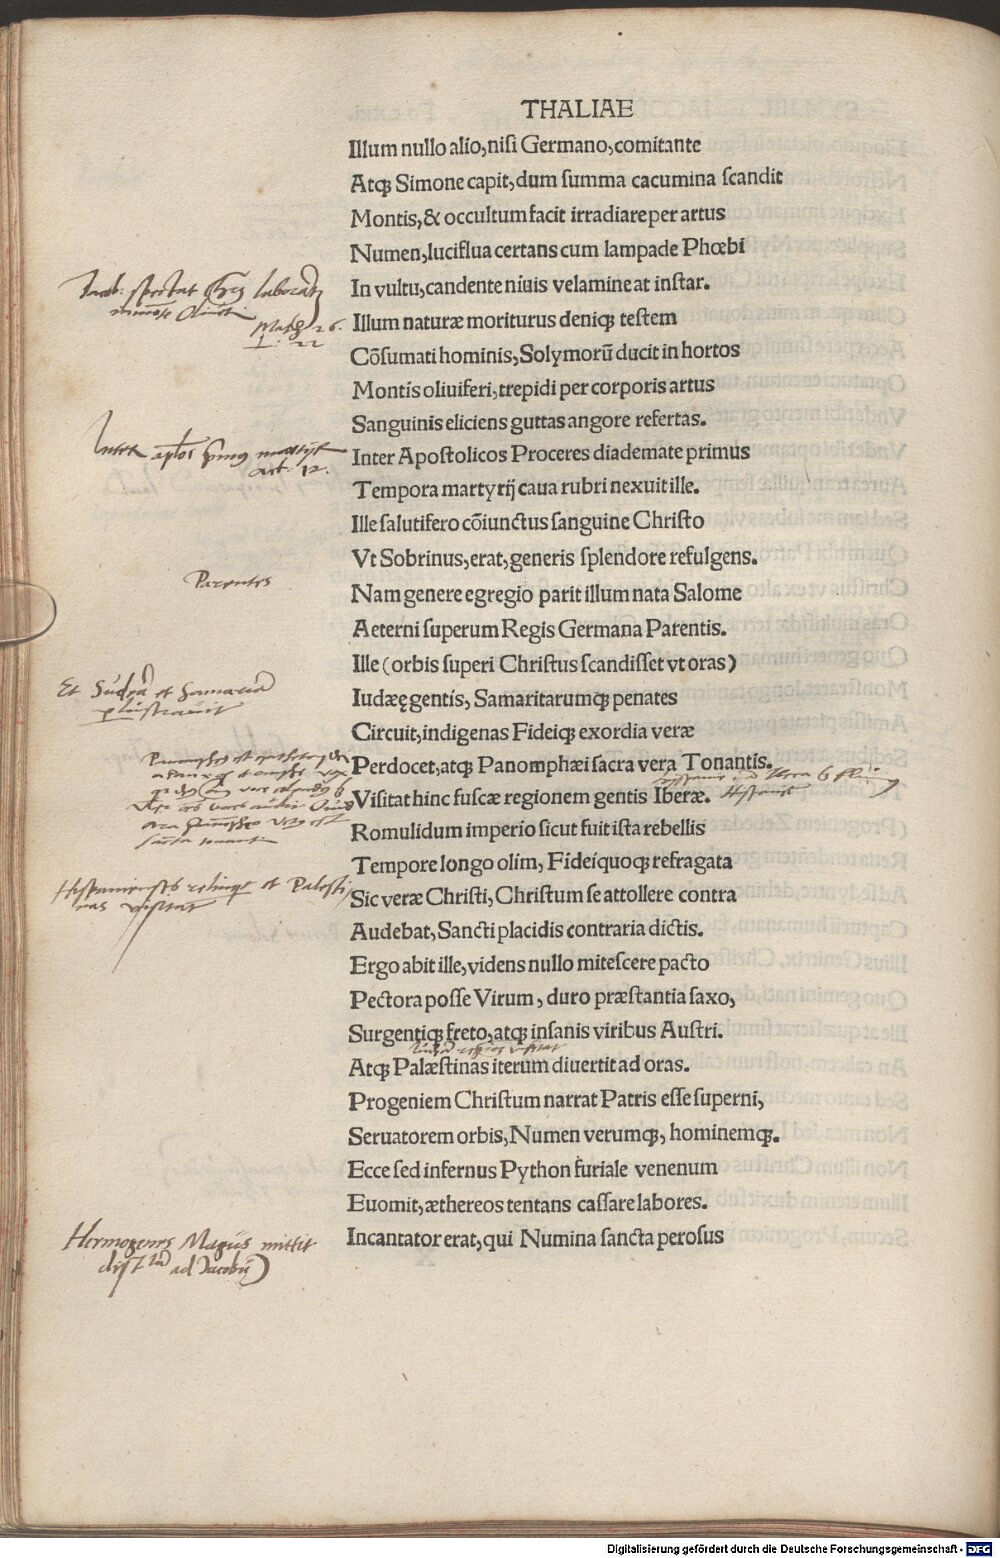 THALIAE
Illum nullo alio, nisi Germano, comitante
Atq; Simone capit, dum summa cacumina scandit
Montis, & occultum facit irradiare per artus
Numen, luciflua certans cum lampade Phœbi
In vultu, candente niuis velamine at instar.
Illum naturæ moriturus deniq; testem
Cōsumati hominis, Solymorū ducit in hortos
Montis oliuiferi, trepidi per corporis artus
Sanguinis eliciens guttas angore refertas.
Inter Apostolicos Proceres diademate primus
Tempora martyrij caua rubri nexuit ille.
Ille salutifero cōiunctus sanguine Christo
Vt Sobrinus, erat, generis splendore refulgens.
Nam genere egregio parit illum nata Salome
Aeterni superum Regis Germana Parentis.
Ille (orbis superi Christus scandisset vt oras)
Iudæę gentis, Samaritarumq; penates
Circuit, indigenas Fideiq; exordia veræ
Perdocet, atq; Panomphæi sacra vera Tonantis.
Visitat hinc fuscæ regionem gentis Iberæ.
Romulidum imperio sicut fuit ista rebellis
Tempore longo olim, Fidei quoq; refragata
Sic veræ Christi, Christum se attollere contra
Audebat, Sancti placidis contraria dictis.
Ergo abit ille, videns nullo mitescere pacto
Pectora posse Virum, duro præstantia saxo,
Surgentiq; freto, atq; insanis viribus Austri.
Atq; Palæstinas iterum diuertit ad oras.
Progeniem Christum narrat Patris esse superni,
Seruatorem orbis, Numen verumq;, hominemq;.
Ecce sed infernus Python furiale venenum
Euomit, æthereos tentans cassare labores.
Incantator erat, qui Numina sancta perosus
26.
22
Act. 12.
Parentes
Et Judeā et Samariā
plustrauit
Hispanienses relinqt et Palesti
nas visitat
Hermogenes Magus mittit
ad Jacobū
Digitalisierung gefördert durch die Deutsche Forschungsgemeinschaft - DFG